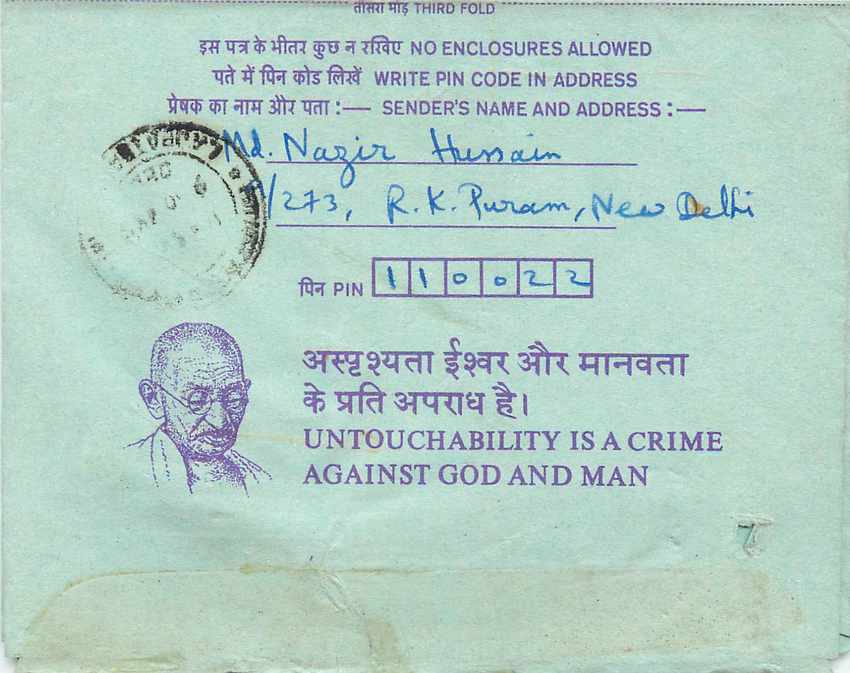 तीसरा मोड़ THIRD FOLD
इस पत्र के भीतर कुछ न रखिए NO ENCLOSURES ALLOWED
पते में पिन कोड लिखें WRITE PIN CODE IN ADDRESS
प्रेषक का नाम और पता :— SENDER'S NAME AND ADDRESS :—
Md. Nazir Hussain
/273, R.K. Puram, New Delhi
पिन PIN 110022
अस्पृश्यता ईश्वर और मानवता
के प्रति अपराध है।
UNTOUCHABILITY IS A CRIME
AGAINST GOD AND MAN